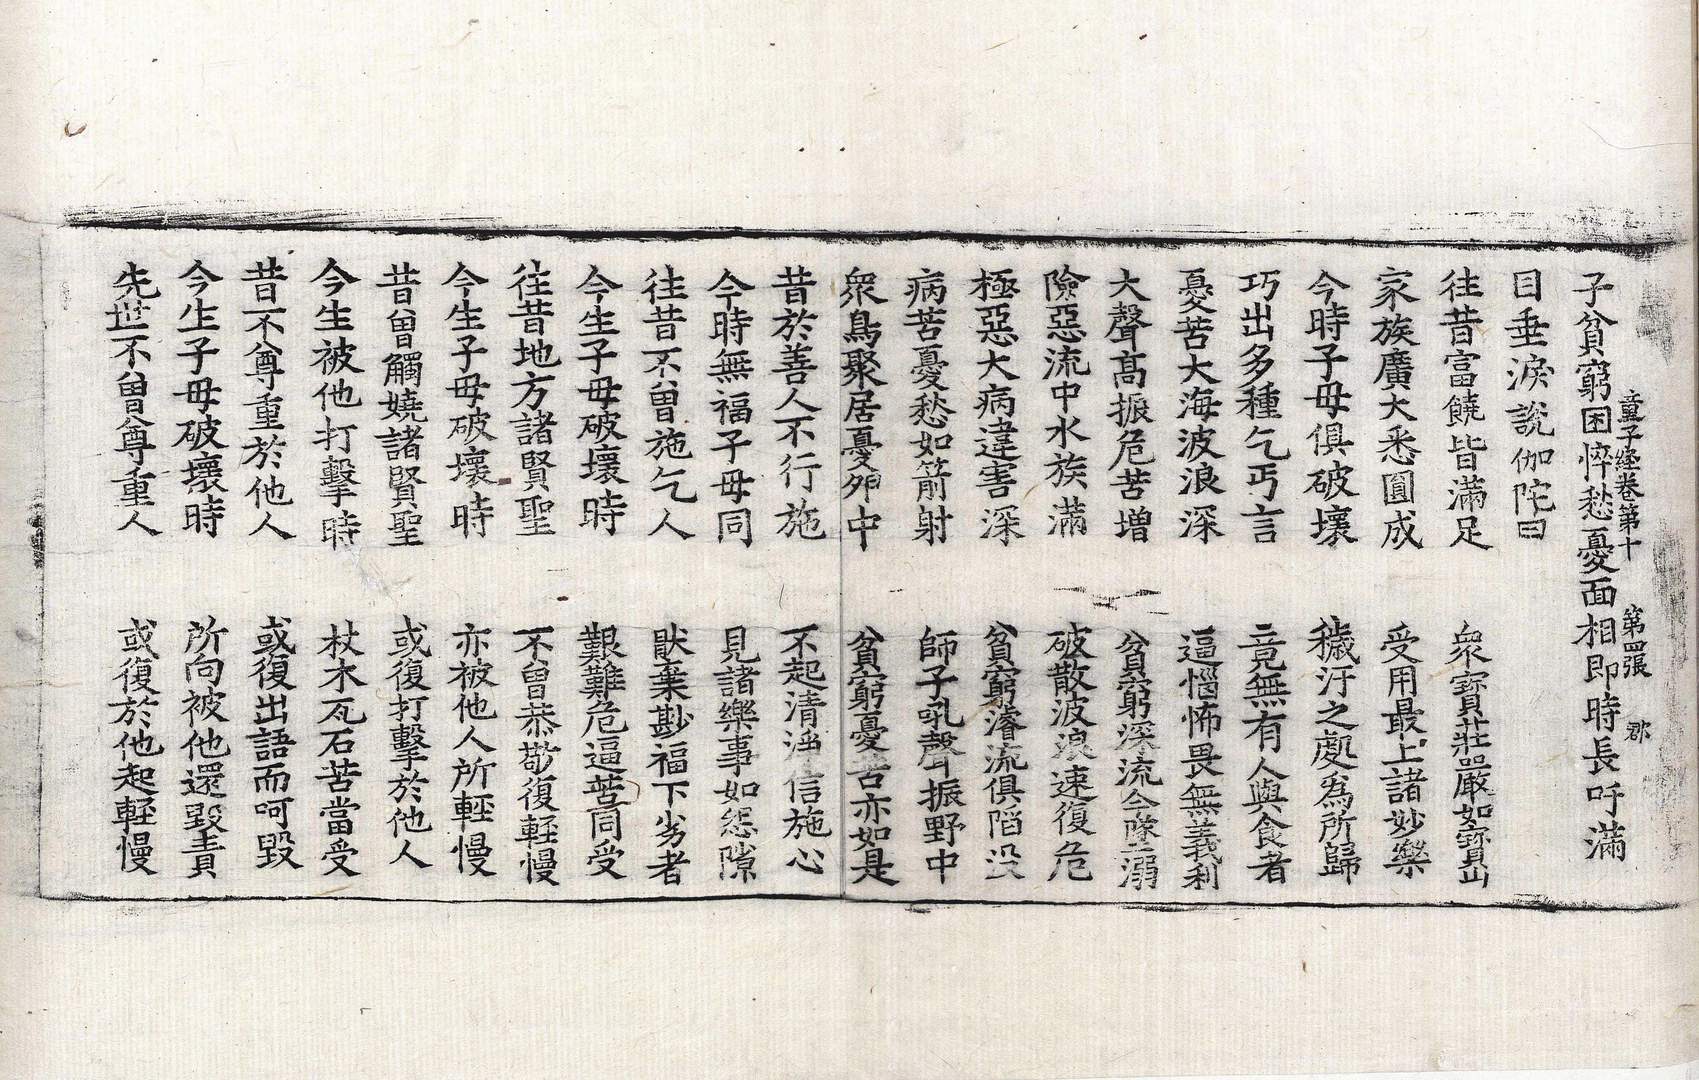 童子経卷第十 第四張 郡
子貧窮困悴愁憂面相即時長吁滿
目垂淚說伽陀曰
往昔富饒皆滿足 衆寶莊嚴如寶山
家族廣大悉圓成 受用最上諸妙樂
今時子母俱破壞 穢汙之處爲所歸
巧出多種乞丐言 竟無有人與食者
憂苦大海波浪深 逼惱怖畏無義利
大聲高振危苦增 貧窮深流今墜溺
險惡流中水族滿 破散波浪速復危
極惡大病違害深 貧窮濬流俱陷没
病苦憂愁如箭射 師子吼聲振野中
衆鳥聚居憂夘中 貧窮憂苦亦如是
昔於善人不行施 不起清淨信施心
今時無福子母同 見諸樂事如怨隙
往昔不曾施乞人 猒棄尠福下劣者
今生子母破壞時 艱難危逼苦同受
往昔地方諸賢聖 不曾恭敬復輕慢
今生子母破壞時 亦被他人所輕慢
昔曾觸嬈諸賢聖 或復打擊於他人
今生被他打擊時 杖木瓦石苦當受
昔不尊重於他人 或復出語而呵毀
今生子母破壞時 所向被他還毀責
先世不曾尊重人 或復於他起輕慢